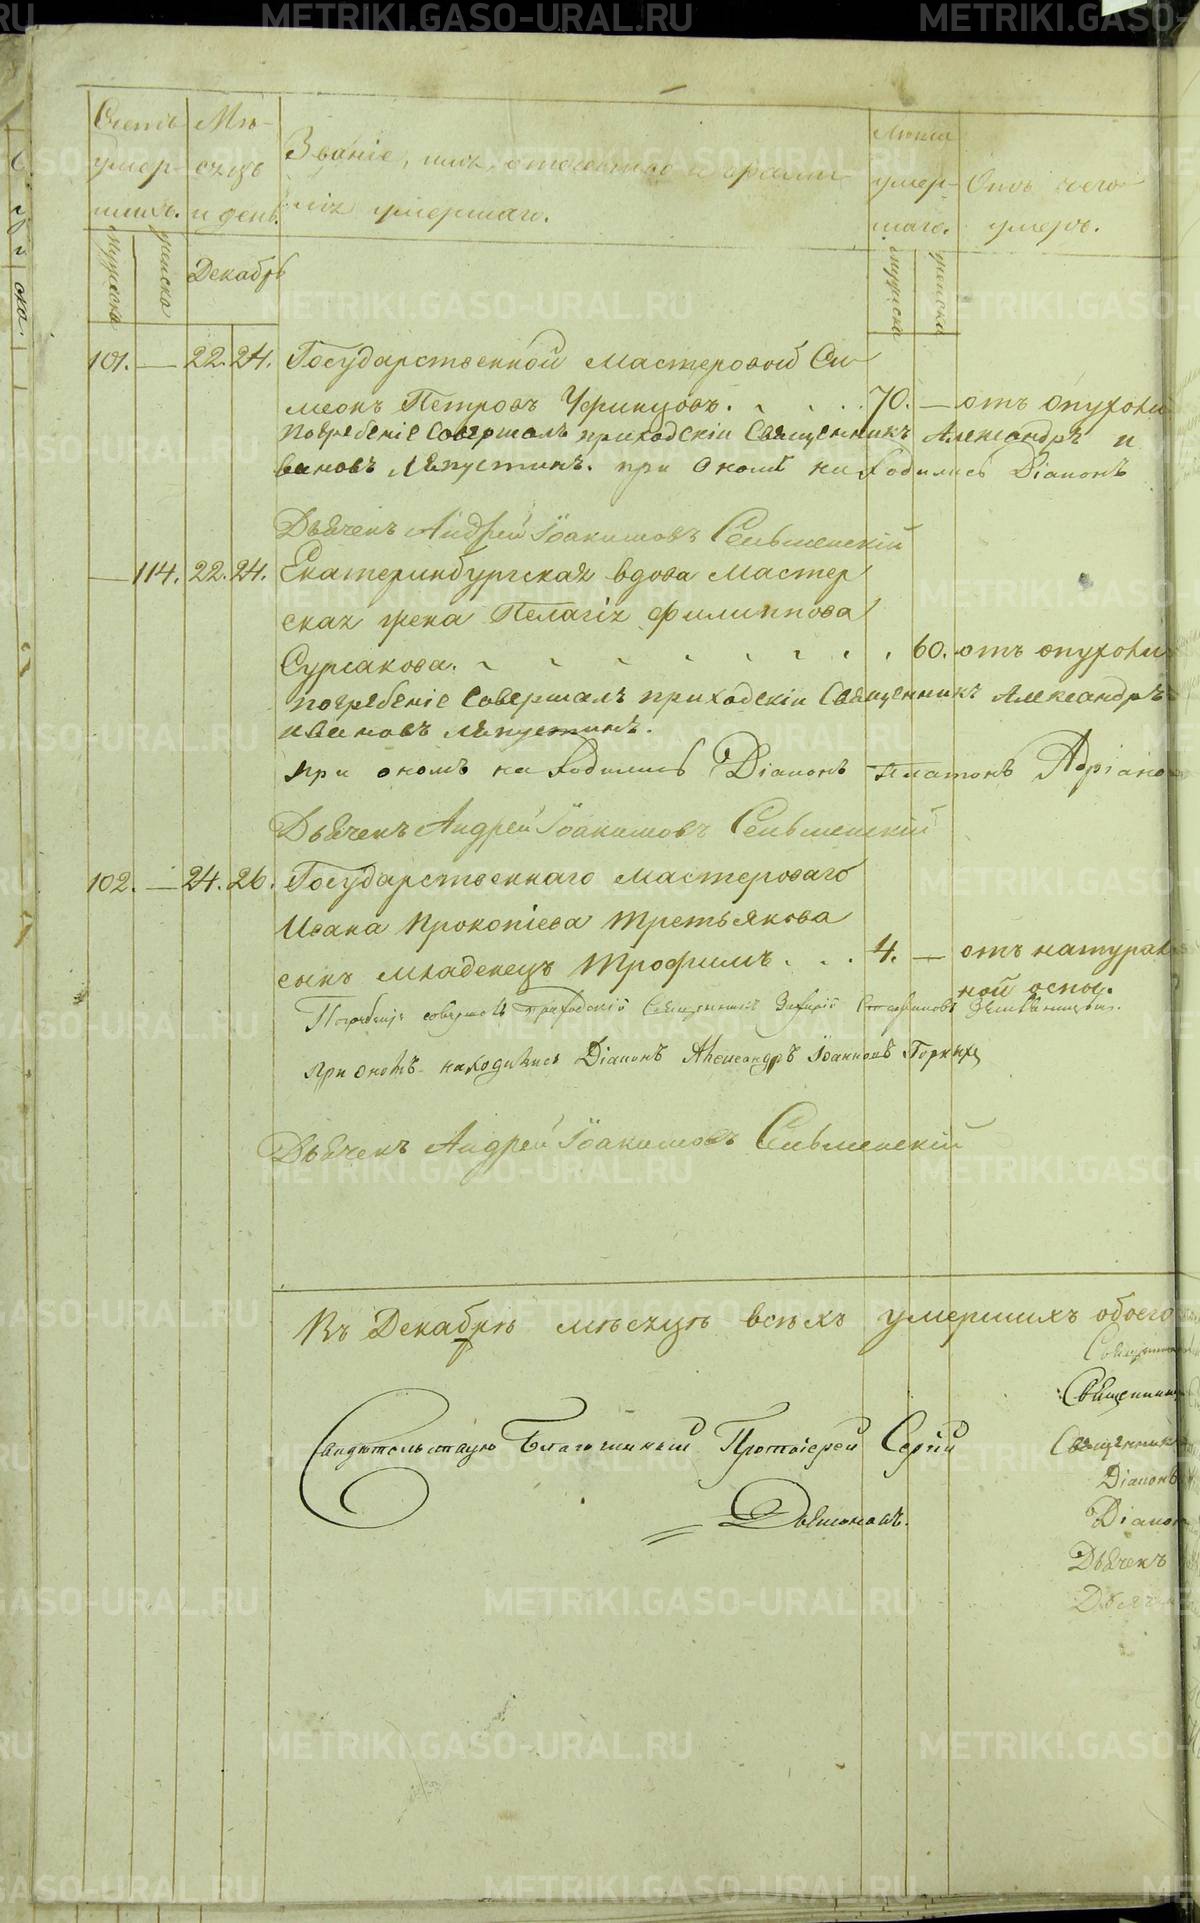 METRIKI.GASO-URAL.RU
Счетъ умер-шихъ.
Мѣ-сяцъ и день.
Званіе, имя, отечество и фамилія умершаго.
Лѣта умер-шаго.
Отъ чего умеръ.
мужеска
женска
Декабрь
мужеска
женска
101. — 22. 24. Государственной мастеровой Си-
меонъ Петровъ 70. — отъ опухоли
Погребеніе совершалъ приходскій Священникъ Александръ И
вановъ Ляпустинъ. при ономъ находились Діаконъ
Дьячекъ Андрей Іоакимовъ
— 114. 22. 24. Екатеринбургская вдова мастер
ская жена Пелагія Филиппова
Сурсакова. 60. отъ опухоли
погребеніе совершалъ приходскій Священникъ Александръ
Ивановъ Ляпустинъ.
при ономъ находились Діаконъ Платонъ Адріано
Дьячекъ Андрей Іоакимовъ
102. — 24. 26. Государственнаго мастероваго
Ивана Прокопіева Третьякова
сынъ младенецъ Трофимъ. 4. — отъ натураль
ной оспы.
Погребеніе совершалъ Приходскій Священникъ Стефановъ
При ономъ находились Діаконъ Александръ Іоанновъ
Дьячекъ Андрей Іоакимовъ
Въ Декабрѣ мѣсяцѣ всѣхъ умершихъ обоего
Священникъ
Священникъ
Свидѣтельствую Благочинный Протоіерей Сергій
Священникъ
Діаконъ
Діаконъ
Дьячекъ